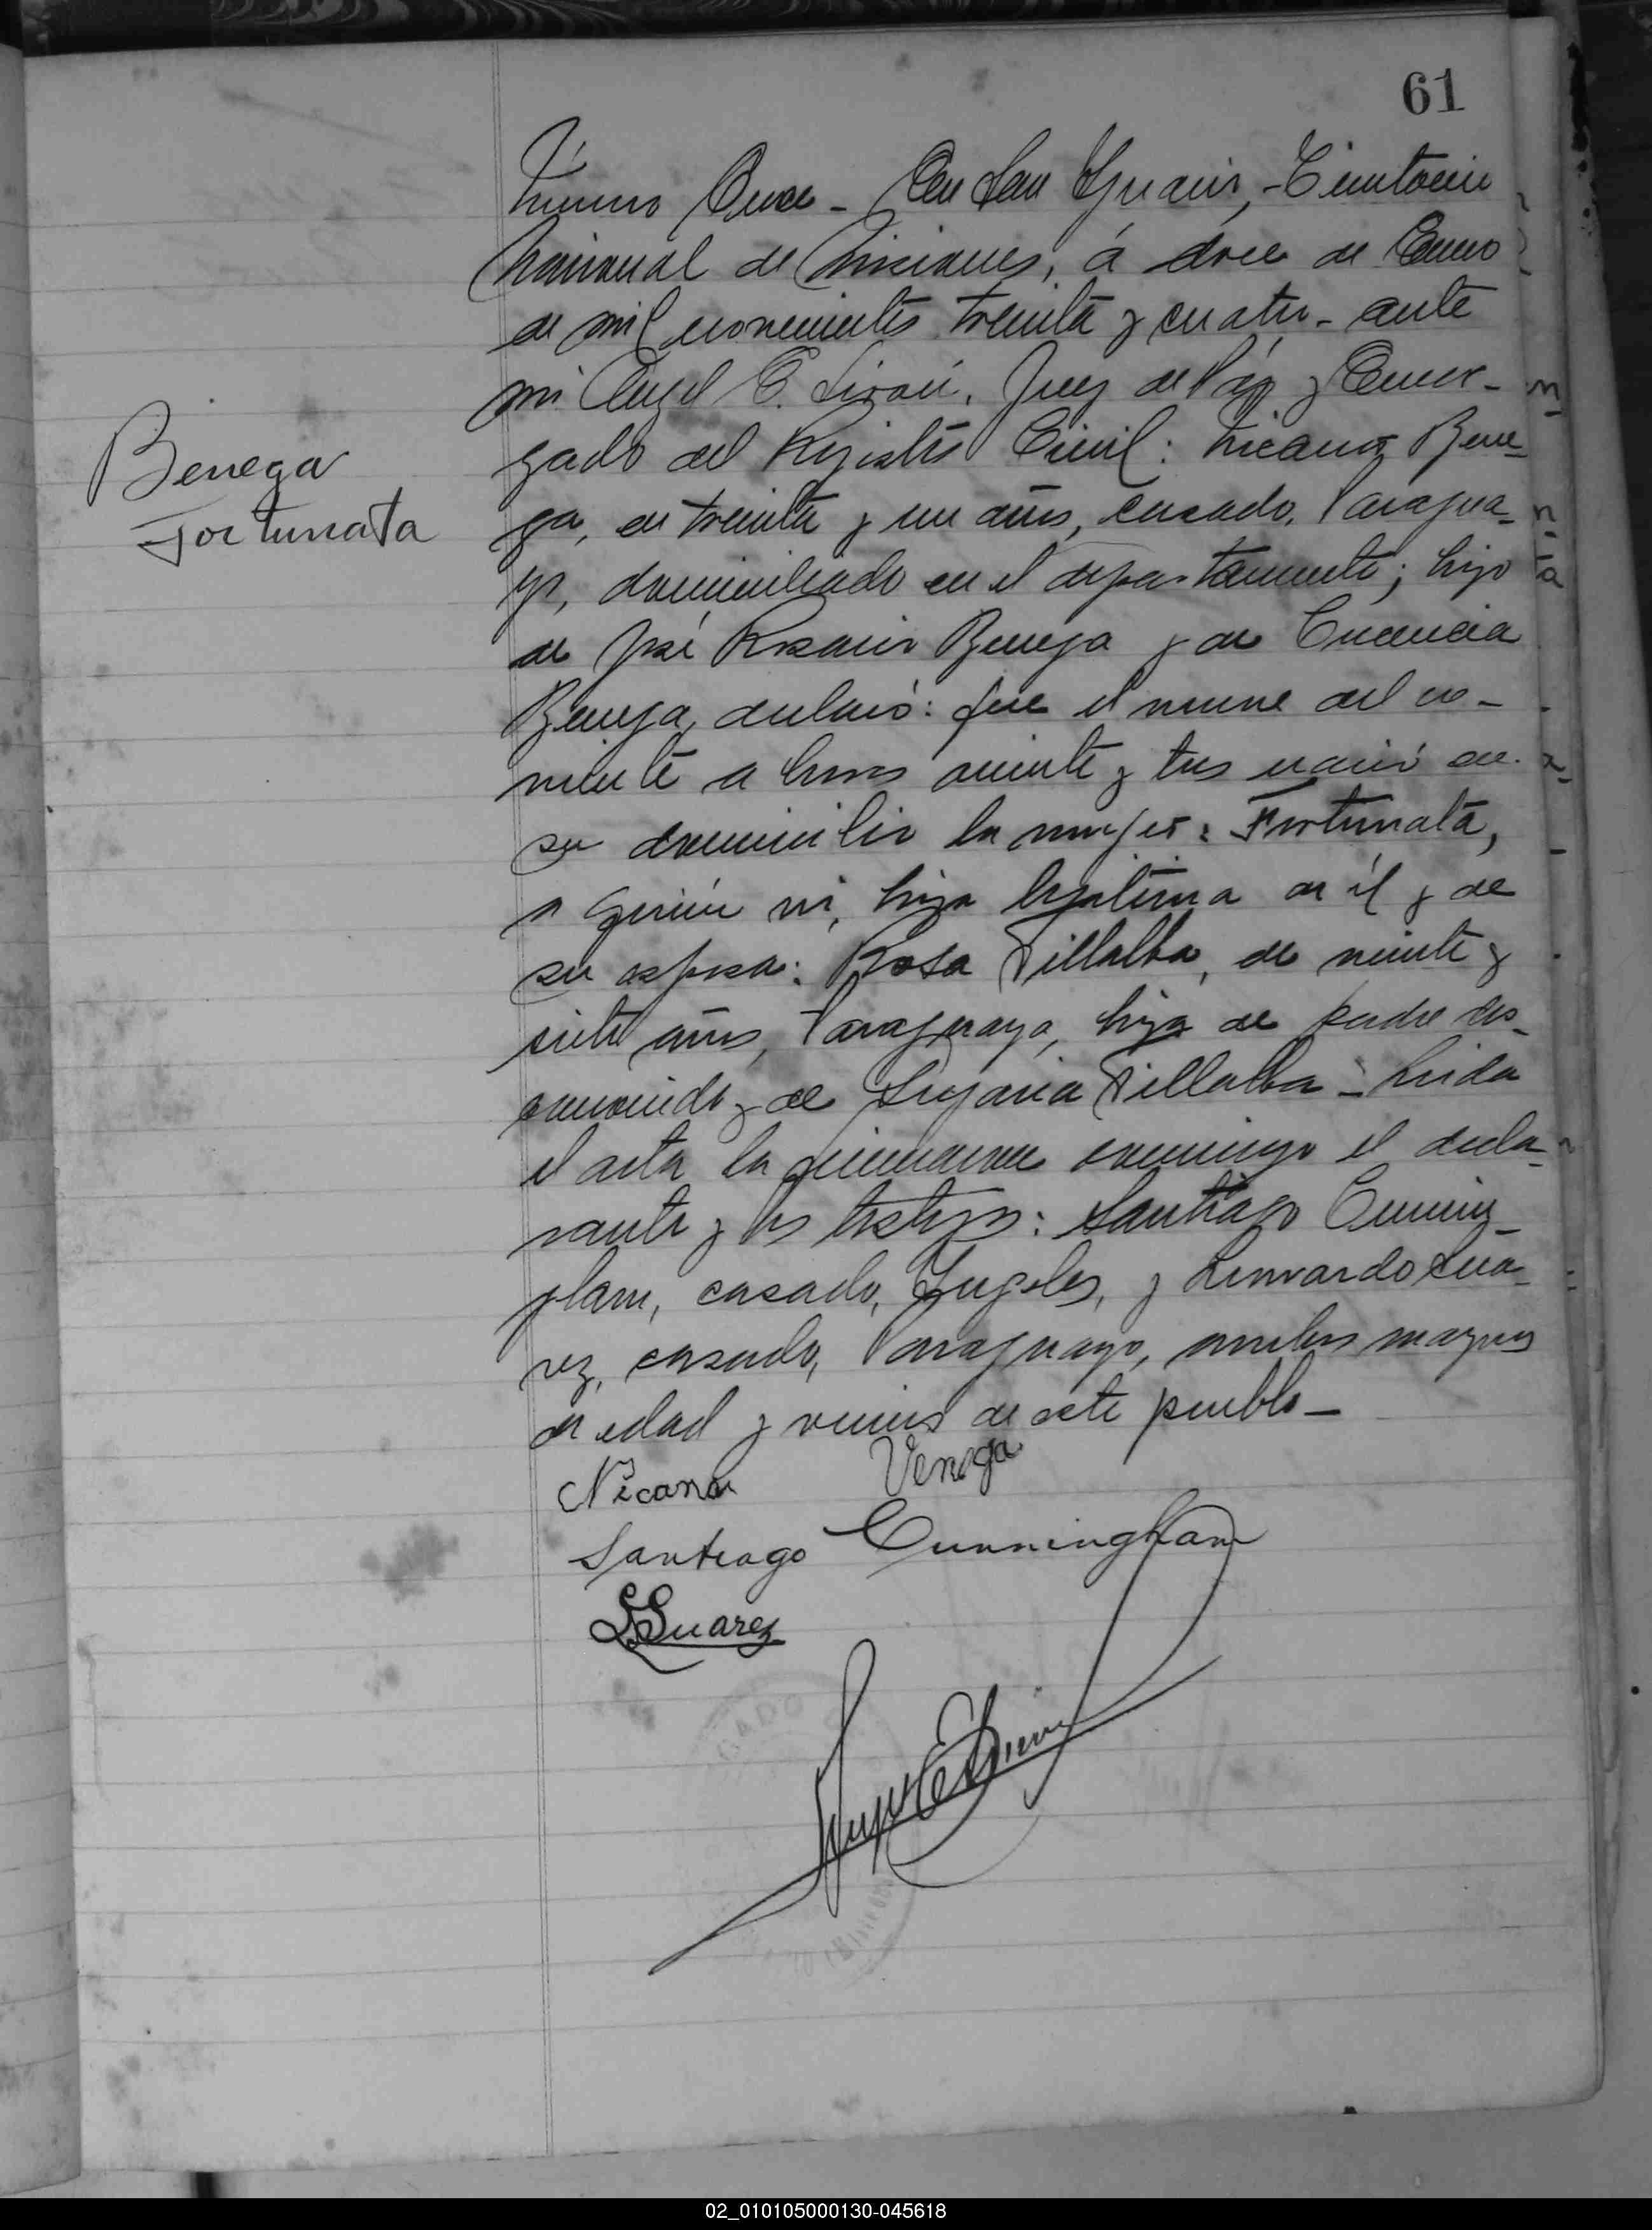 61
Número Once - En San Ignacio, Territorio
Nacional de Misiones, á doce de Enero
de mil novecientos treinta y cuatro - ante
mi Angel E. Juez de Paz y Encar-
gado del Registro Civil: Nicanor Bene-
ga, de treinta y un años, casado, Paragua-
yo, domiciliado en el departamento; hijo
de José Rosario Benega y de Cresencia
Benega, declaró: Que el nueve del co-
rriente a horas veinte y tres nació en
su domicilio la mujer: Fortunata,
a quien vi, hija legitima de él y de
su esposa: Rosa Villalba, de veinte y
siete años, Paraguaya, hija de padre des-
conocido y de Villalba - Leida
el acta la firmaron conmigo el decla-
rante y los testigos: Santiago Cunnin-
gham, casado, Ingles, y Leonardo Sua-
rez, casado, Paraguayo, ambos mayores
de edad y vecinos de este pueblo -
Benega
Fortunata
Nicanor Venega
Santiago Cunningham
L Suarez
02_010105000130-045618